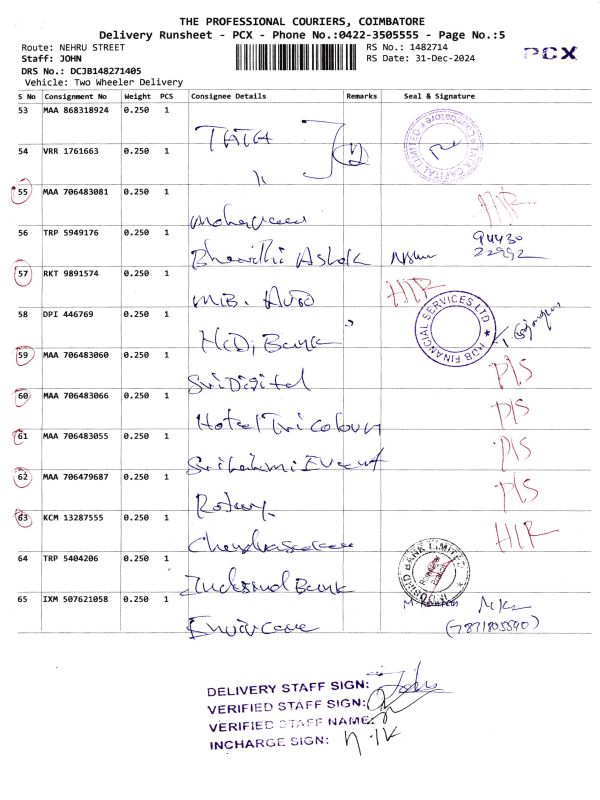 THE PROFESSIONAL COURIERS, COIMBATORE
Delivery Runsheet - PCX - Phone No.:0422-3505555 - Page No.:5
Route: NEHRU STREET RS No.: 1482714
Staff: JOHN RS Date: 31-Dec-2024 PCX
DRS No.: DCJB148271405
Vehicle: Two Wheeler Delivery
S No Consignment No Weight PCS Consignee Details Remarks Seal & Signature
53 MAA 868318924 0.250 1
TATA
TATA CAPITAL LIMITED
54 VRR 1761663 0.250 1
55 MAA 706483081 0.250 1
HIR
56 TRP 5949176 0.250 1
Bharathi Ashok
94430
22992
57 RKT 9891574 0.250 1
M.B. Auto HIR
58 DPI 446769 0.250 1
HDB FINANCIAL SERVICES LTD
Bank
59 MAA 706483060 0.250 1
Sri Digital P/S
60 MAA 706483066 0.250 1
Hotel Tricolour P/S
61 MAA 706483055 0.250 1
P/S
62 MAA 706479687 0.250 1
Rotary P/S
63 KCM 13287555 0.250 1
HIR
64 TRP 5404206 0.250 1
Indusind Bank
BANK LIMITED
65 IXM 507621058 0.250 1
Envirocare
(7871805590)
DELIVERY STAFF SIGN: John
VERIFIED STAFF SIGN:
VERIFIED STAFF NAME:
INCHARGE SIGN: